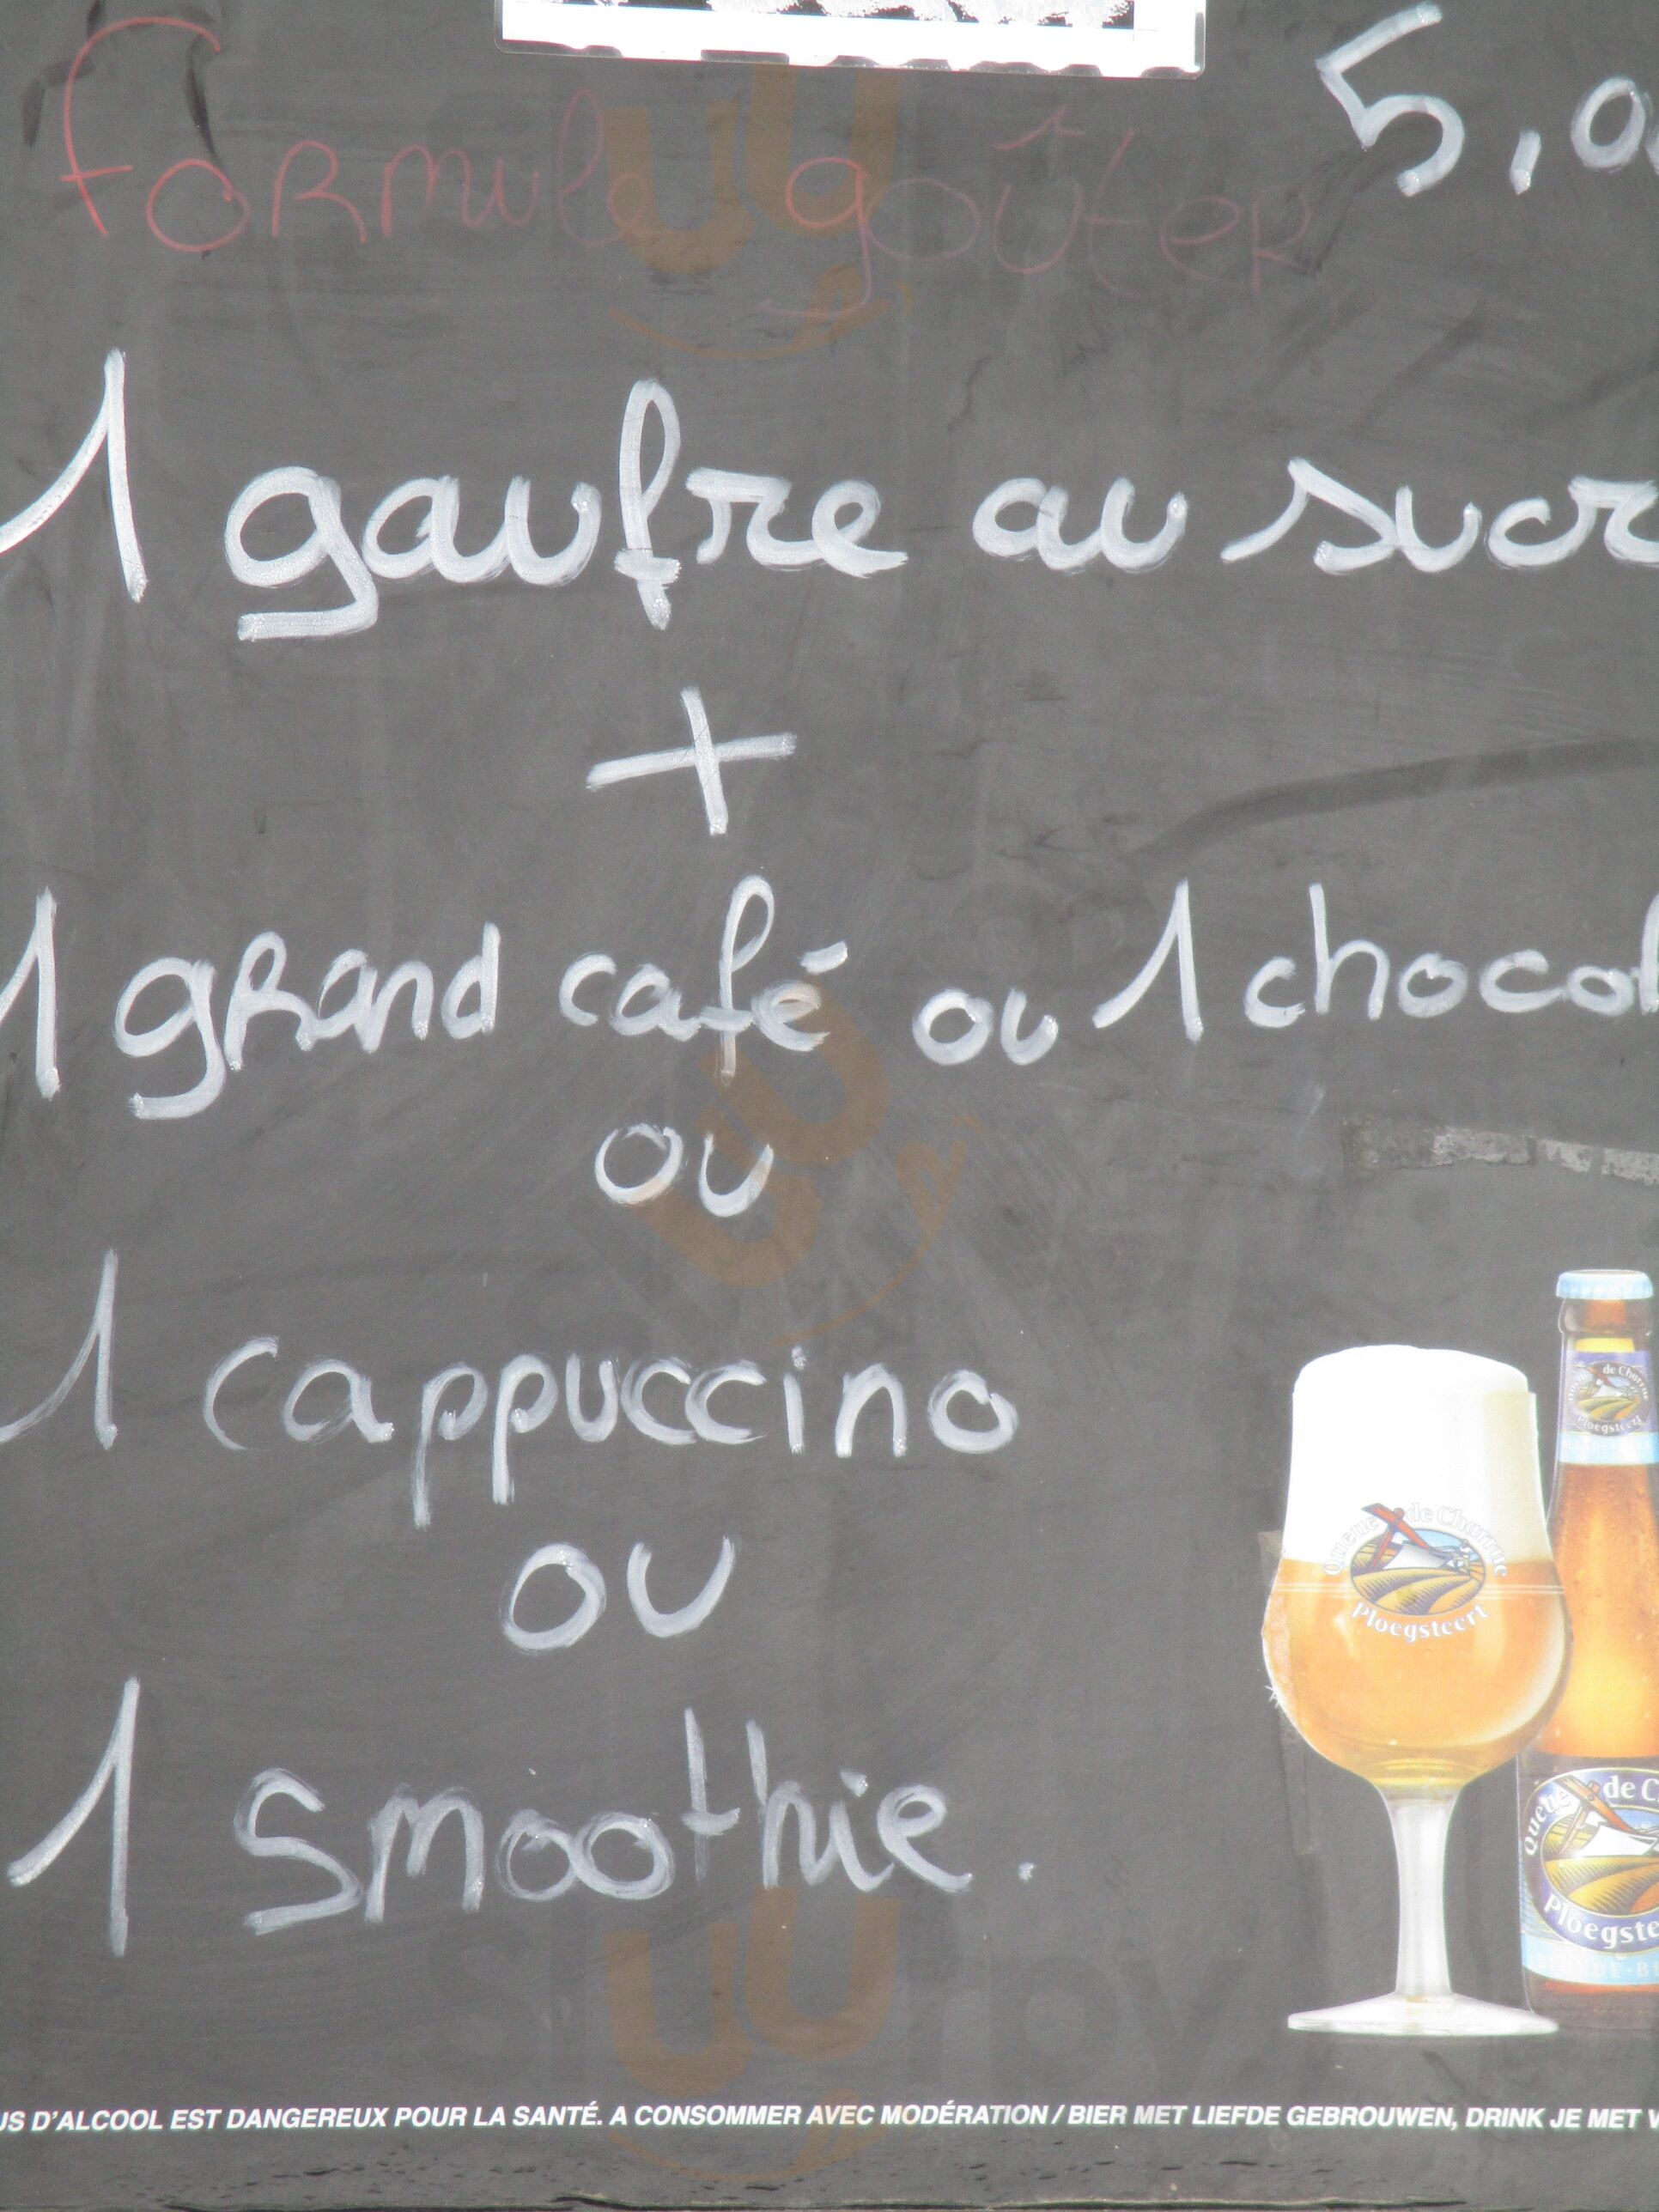 5,0
Formule goûter
1 gaufre au sucr
+
1 grand café ou 1 chocol
ou
1 cappuccino
ou
1 smoothie.
de Charrue
Ploegsteert
Queue de Charrue
Ploegsteert
Queue de C
Ploegste
US D'ALCOOL EST DANGEREUX POUR LA SANTÉ. A CONSOMMER AVEC MODÉRATION / BIER MET LIEFDE GEBROUWEN, DRINK JE MET V